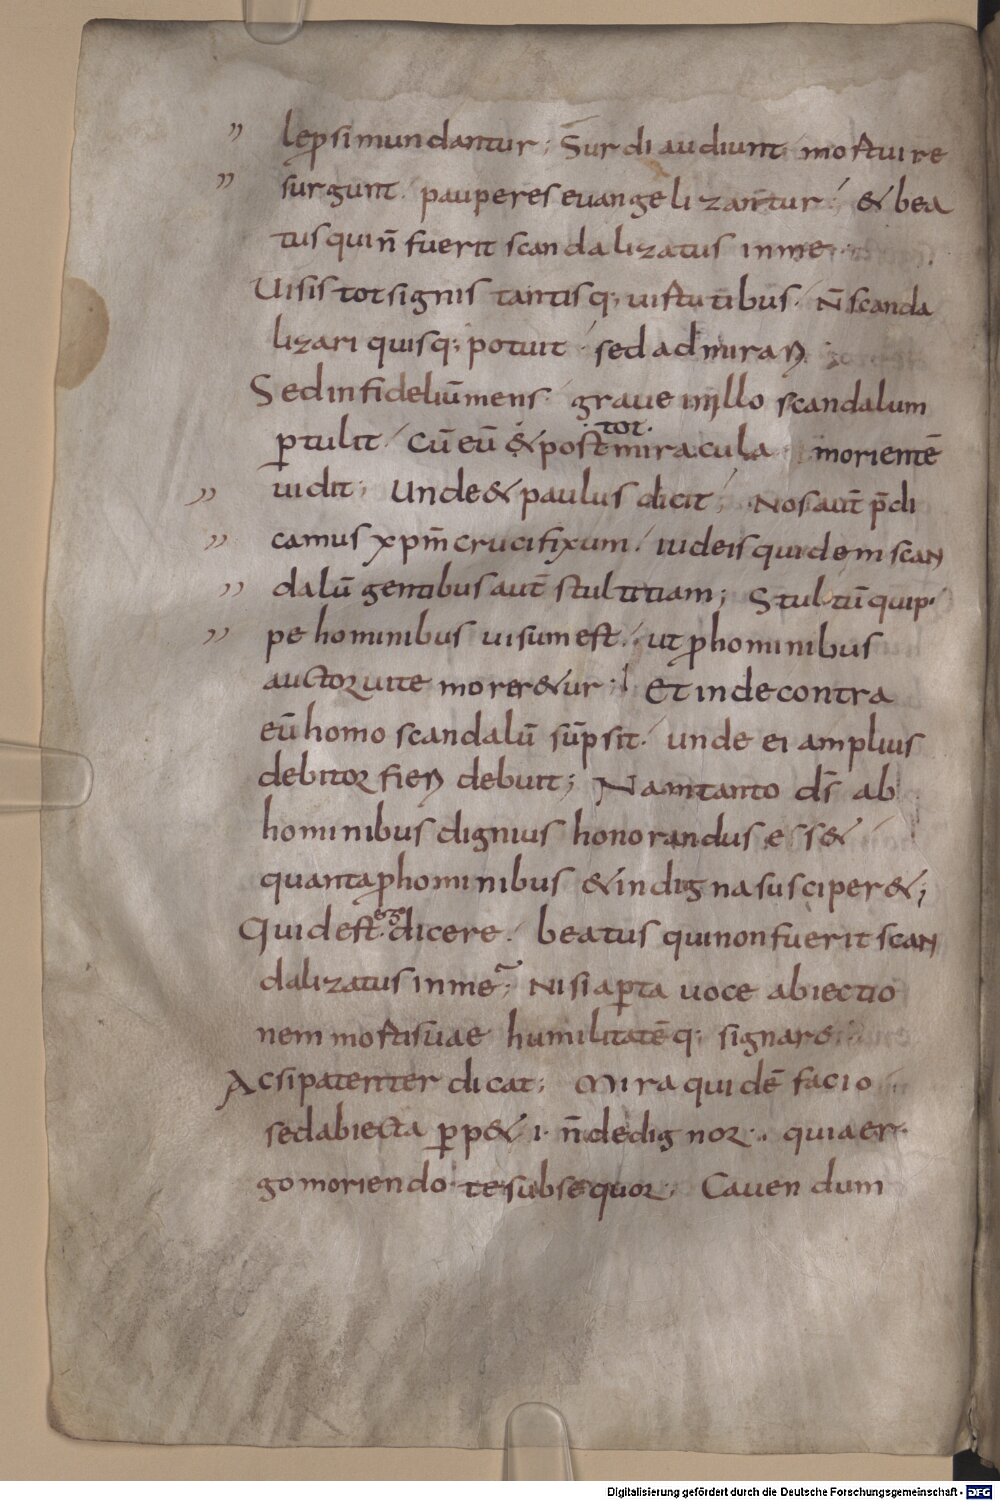 leprosi mundantur; Surdi audiunt mortui re
surgunt. pauperes evangelizantur; & bea
tus qui n̄ fuerit scandalizatus in me.
Uisis tot signis tantisq; uirtutibus. N̄ scanda
lizari quisq; potuit sed admirari;
Sed infideliū mens. graue in illo scandalum
ꝑtulit. Cū eū & post tot miracula morientē
uidit; Unde & paulus dicit; Nos aut̄ p̄di
camus xp̄m crucifixum. iudeis quidem scan
dalū gentibus aut̄ stultitiam; Stultū quip
pe hominibus uisum est. ut ꝓ hominibus
auctor uite morer&ur; Et inde contra
eū homo scandalū sūpsit. unde ei amplius
debitor fieri debuit; Nam tanto d̄s ab
hominibus dignius honorandus ess&
quanta ꝓ hominibus & indigna susciper&;
Quid est ergo dicere. beatus qui non fuerit scan
dalizatus in me; Nisi aꝑta uoce abiectio
nem mortis suae humilitatēq; signare;
Ac si patenter dicat; Mira quidē facio
sed abiecta ꝑp&i n̄ dedignor. quia er
go moriendo te subsequor; Cauendum
Digitalisierung gefördert durch die Deutsche Forschungsgemeinschaft - DFG